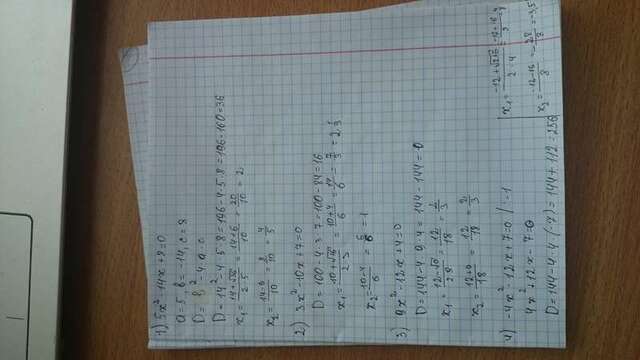 1) 5x² - 14x + 8 = 0
a = 5, b = -14, c = 8
D = b² - 4ac
D = 14² - 4·5·8 = 196 - 160 = 36
x₁ = (14 + √36)/(2·5) = (14 + 6)/10 = 20/10 = 2
x₂ = (14 - 6)/10 = 8/10 = 4/5
2) 3x² - 10x + 7 = 0
D = 100 - 4·3·7 = 100 - 84 = 16
x₁ = (10 + √16)/(2·3) = (10 + 4)/6 = 14/6 = 7/3 = 2 1/3
x₂ = (10 - 4)/6 = 6/6 = 1
3) 9x² - 12x + 4 = 0
D = 144 - 4·9·4 = 144 - 144 = 0
x₁ = (12 - √0)/(2·9) = 12/18 = 2/3
x₂ = (12 + 0)/18 = 12/18 = 2/3
4) -4x² - 12x + 7 = 0 | · -1
4x² + 12x - 7 = 0
D = 144 - 4·4·(-7) = 144 + 112 = 256
x₂ = (-12 - 16)/8 = -28/8 = -3,5